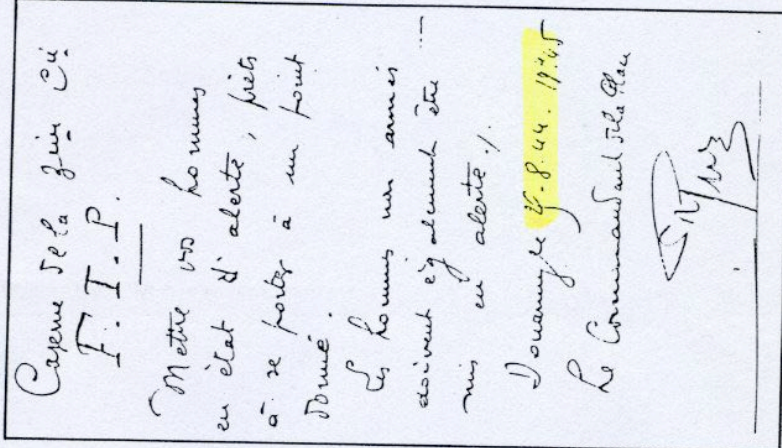 Caserne de la 2ème Cie
F.T.P.
Mettre vos hommes
en état d'alerte, prêts
à se porter à un point
donné.
Les hommes non armés
doivent également être
mis en alerte./.
Douarnenez le -8-44. 19h45
Le Commandant de la Place